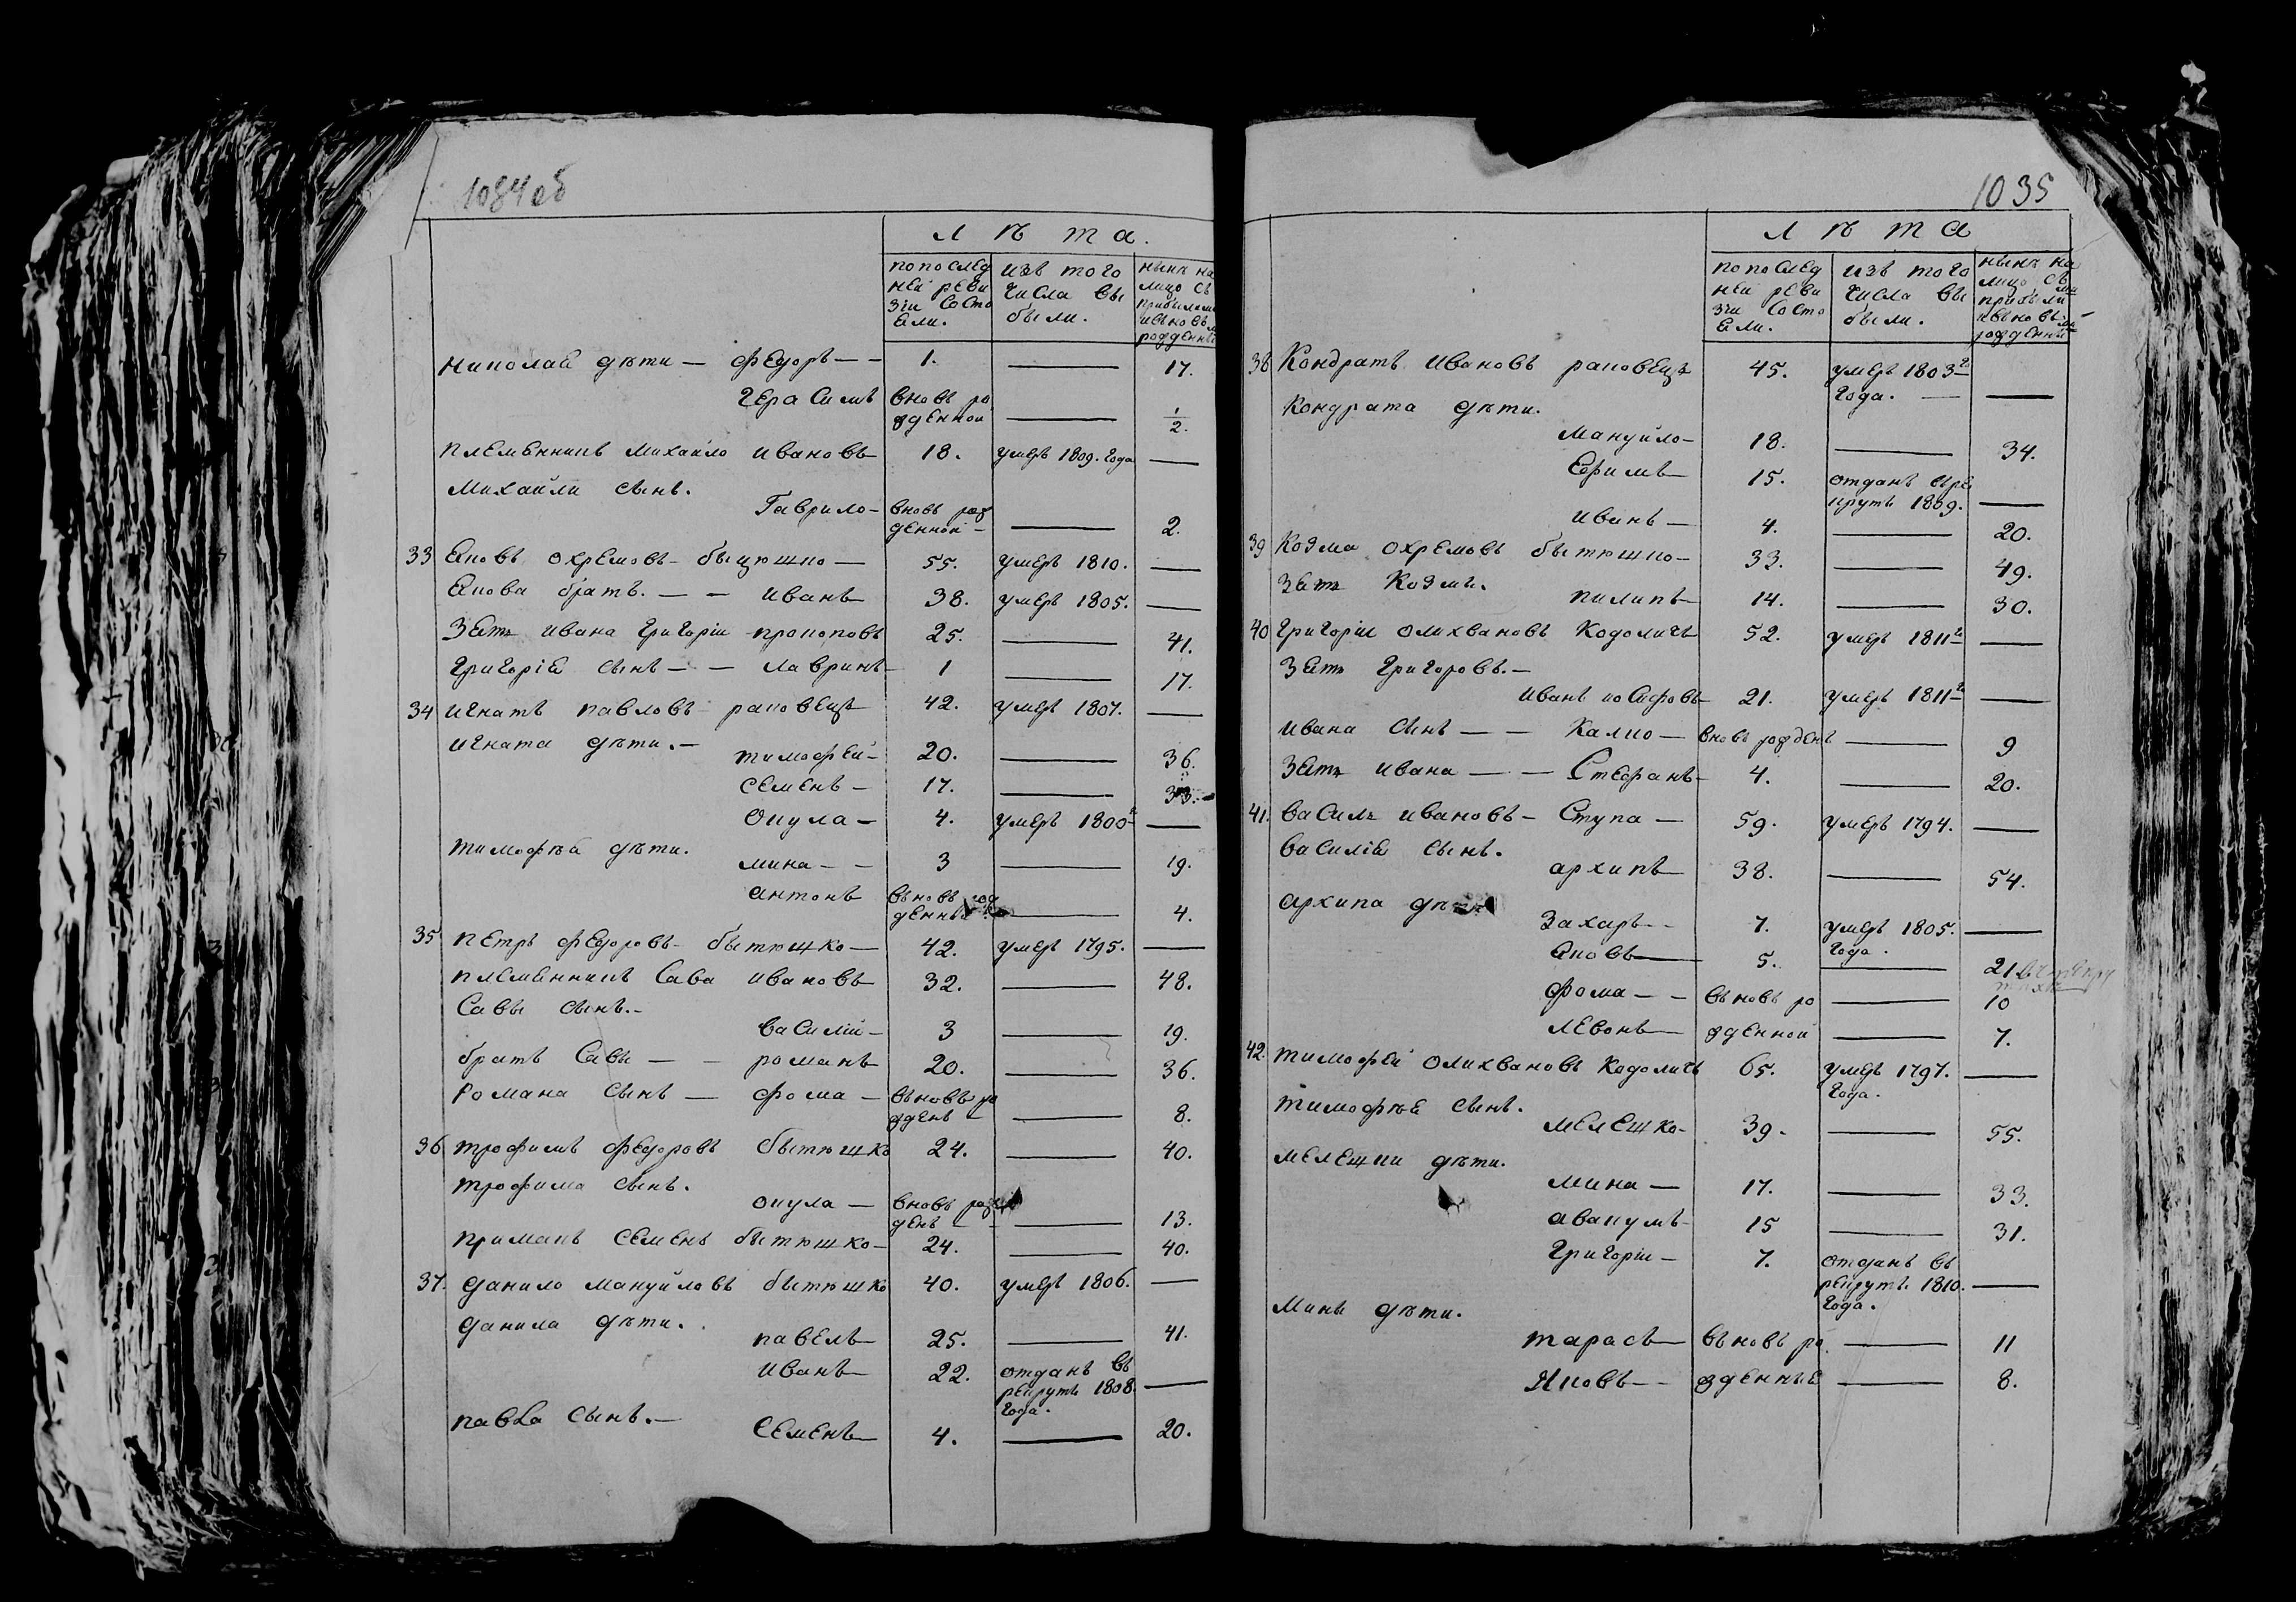 1084 об
Л Ѣ т а.
по послед
ней реви
зіи состо
яли.
изъ того
числа вы
были.
нынѣ на
лицо съ
рожденны
Николая дѣти — Федоръ — — 1. — 17.
Герасимъ вновь ро
жденной — 1/2.
племянникъ Михайло Ивановъ 18. умеръ 1809. года —
Михайли сынъ.
Гаврило — вновь рож
денной — — 2.
33 Яковъ Охремовъ — бытюшко — 55. умеръ 1810. —
Якова братъ. — — Иванъ 38. умеръ 1805. —
Зять Ивана Григорій Прокоповъ 25. — 41.
Григорія сынъ — — Лавринъ 1 — 17.
34 Игнатъ Павловъ раковецъ 42. умеръ 1807. —
Игната дѣти. — Тимофей — 20. — 36.
Семенъ — 17. — 33. —
Окула — 4. умеръ 1800 г —
Тимофѣя дѣти.
Мина — — 3 — 19.
Антонъ вьновь рож
денны — 4.
35 Петръ Федоровъ — бытюшко — 42. умеръ 1795. —
племянникъ Сава Ивановъ 32. — 48.
Савы сынъ. —
Василій — 3 — 19.
братъ Савы — — Романъ 20. — 36.
Романа сынъ — Фома — вьновь ро
жденъ — — 8.
36 Трофимъ Федоровъ бытюшко 24. — 40.
Трофима сынъ.
Окула — вновь рож
денъ — — 13.
примакъ Семенъ бытюшко — 24. — 40.
37. Данило Мануйловъ бытюшко 40. умеръ 1806. —
Данила дѣти.
Павелъ 25. — 41.
Иванъ 22. отданъ въ
рекруты 1808. —
года.
Павла сынъ. —
Семенъ 4. — 20.
1035
Л Ѣ т а
по послед
ней реви
зіи состо
яли.
изъ того
числа вы
были.
нынѣ на
лицо съ
прибыли
ми
ивьновь
рожденни
ми
38 Кондратъ Ивановъ раковецъ 45. умеръ 1803 г
года. — —
Кондрата дѣти.
Мануйло — 18. — 34.
Ефимъ 15. отданъ врe
круты 1809. —
Иванъ — 4. — 20.
39 Козма Охремовъ бытюшко — 33. — 49.
Зять Козмы.
Пилипъ 14. — 30.
40 Григорій Олихвановъ Кодоличъ 52. умеръ 1811 г —
Зять Григоровъ. —
Иванъ Иосифовъ 21. умеръ 1811 г —
Ивана сынъ — — Калко — вновь рожденъ — 9
Зять Ивана — — Стефанъ 4. — 20.
41. Василь Ивановъ — Ступа — 59. умеръ 1794. —
Василія сынъ.
Архипъ 38. — 54.
Архипа дѣти
Захаръ — 7. умеръ 1805. —
года.
Яковъ 5. — 21
Фома — — вьновь ро — 10
Левонъ жденной — 7.
42. Тимофей Олихвановъ Кодоличъ 65. умеръ 1797. —
года.
Тимофѣя сынъ.
Мелешко — 39. — 55.
Мелешки дѣти.
Мина — 17. — 33.
Авакумъ 15 — 31.
Григорій — 7. отданъ въ
рекруты 1810. —
года.
Мины дѣти.
Тарасъ вьновь ро — 11
Яковъ — жденные — 8.